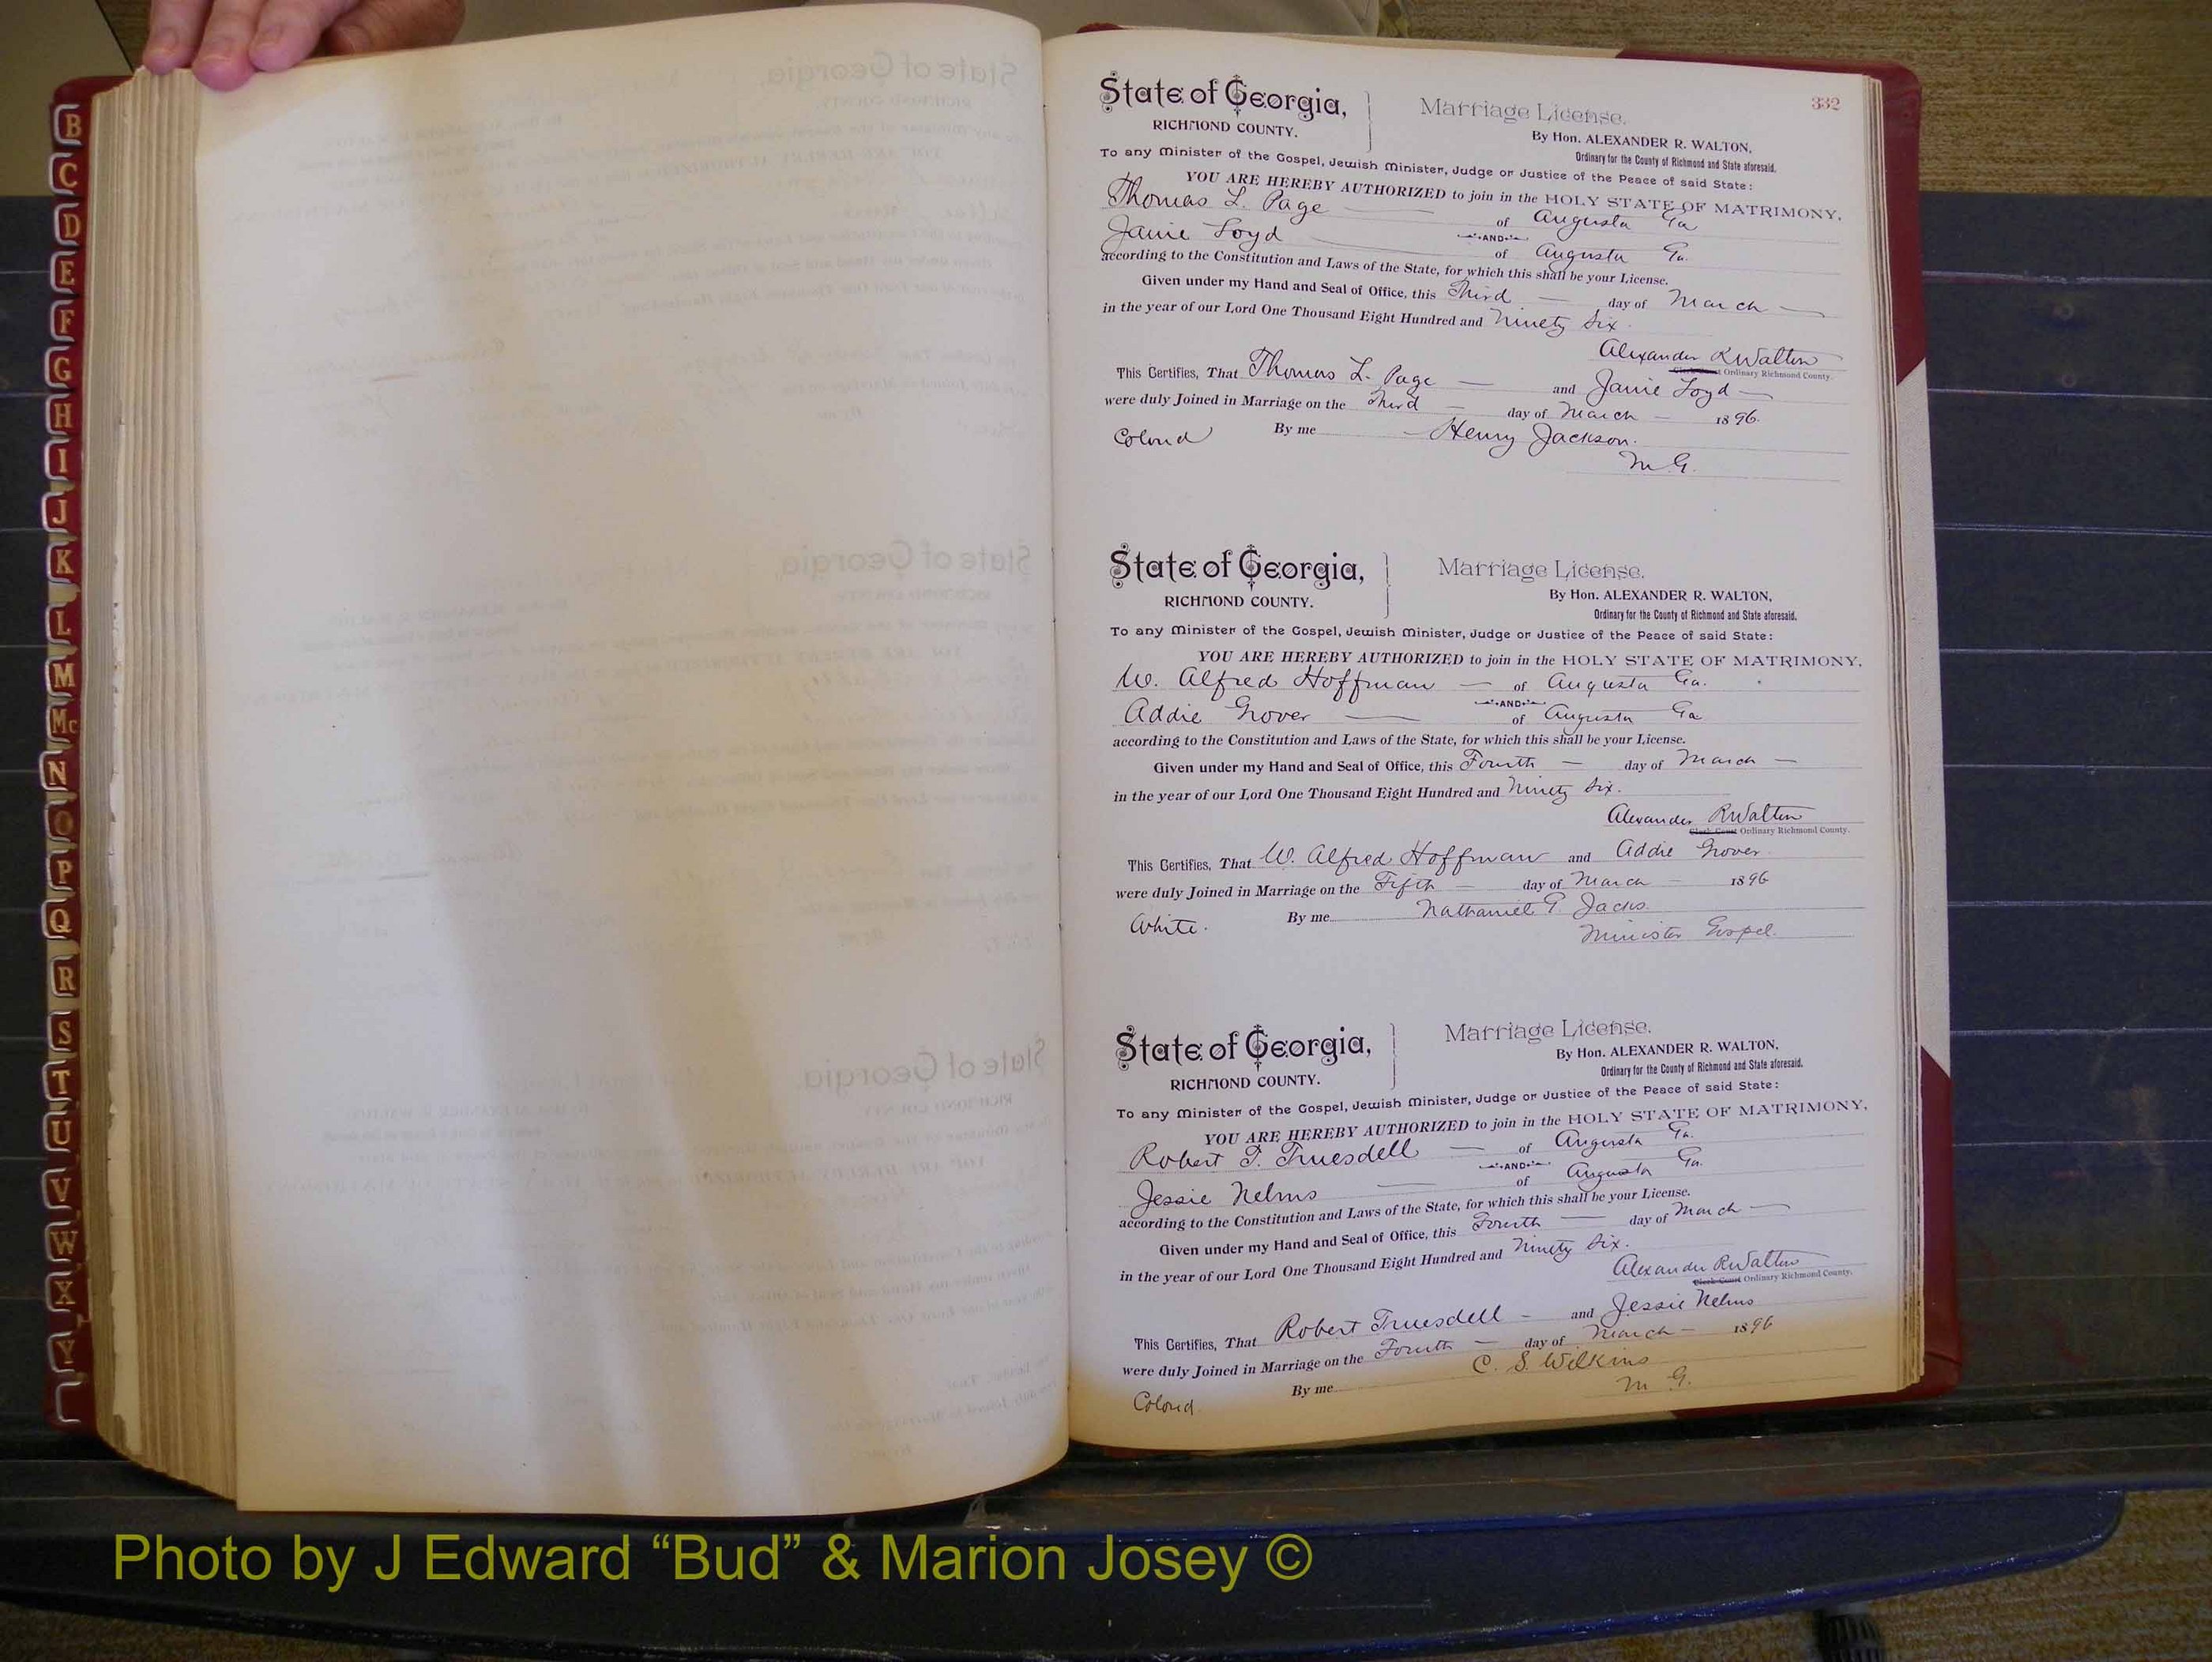 B
C
D
E
F
G
H
I
J
K
L
M
Mc
N
O
P
Q
R
S
T
U
V
W
X
Y
332
State of Georgia,
RICHMOND COUNTY.
Marriage License.
By Hon. ALEXANDER R. WALTON,
Ordinary for the County of Richmond and State aforesaid.
To any Minister of the Gospel, Jewish Minister, Judge or Justice of the Peace of said State:
YOU ARE HEREBY AUTHORIZED to join in the HOLY STATE OF MATRIMONY,
Thomas L. Page of Augusta Ga
AND
Janie Loyd of Augusta Ga.
according to the Constitution and Laws of the State, for which this shall be your License.
Given under my Hand and Seal of Office, this Third day of March
in the year of our Lord One Thousand Eight Hundred and Ninety Six.
Alexander R Walton
Ordinary Richmond County.
This Certifies, That Thomas L. Page and Janie Loyd
were duly Joined in Marriage on the Third day of March 1896.
Colored By me Henry Jackson.
M.G.
State of Georgia,
RICHMOND COUNTY.
Marriage License.
By Hon. ALEXANDER R. WALTON,
Ordinary for the County of Richmond and State aforesaid.
To any Minister of the Gospel, Jewish Minister, Judge or Justice of the Peace of said State:
YOU ARE HEREBY AUTHORIZED to join in the HOLY STATE OF MATRIMONY,
W. Alfred Hoffman of Augusta Ga.
AND
Addie Grover of Augusta Ga
according to the Constitution and Laws of the State, for which this shall be your License.
Given under my Hand and Seal of Office, this Fourth day of March
in the year of our Lord One Thousand Eight Hundred and Ninety Six.
Alexander R Walton
Clerk Court Ordinary Richmond County.
This Certifies, That W. Alfred Hoffman and Addie Grover
were duly Joined in Marriage on the Fifth day of March 1896
White. By me Nathaniel G. Jacks.
Minister Gospel.
State of Georgia,
RICHMOND COUNTY.
Marriage License.
By Hon. ALEXANDER R. WALTON,
Ordinary for the County of Richmond and State aforesaid.
To any Minister of the Gospel, Jewish Minister, Judge or Justice of the Peace of said State:
YOU ARE HEREBY AUTHORIZED to join in the HOLY STATE OF MATRIMONY,
Robert T. Truesdell of Augusta Ga.
AND
Jessie Nelms of Augusta Ga.
according to the Constitution and Laws of the State, for which this shall be your License.
Given under my Hand and Seal of Office, this Fourth day of March
in the year of our Lord One Thousand Eight Hundred and Ninety Six.
Alexander R Walton
Clerk Court Ordinary Richmond County.
This Certifies, That Robert Truesdell and Jessie Nelms
were duly Joined in Marriage on the Fourth day of March 1896
Colored By me C. S. Wilkins
M G.
Photo by J Edward “Bud” & Marion Josey ©